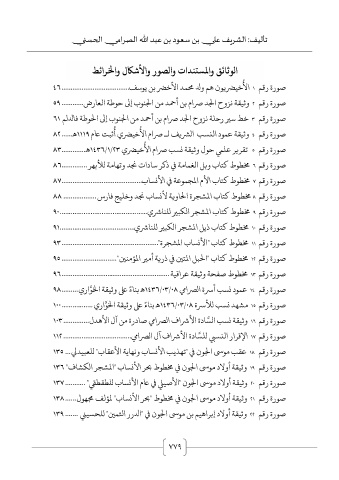 تأليف: الشريف علي بن سعود بن عبد الله الصرامي الحسني
الوثائق والمستندات والصور والأشكال والخرائط
صورة رقم ١ الأُخيضريون هم ولد محمد الأخضر بن يوسف ٤٦
صورة رقم ٢ وثيقة نزوح الجد صرام بن أحمد من الجنوب إلى حوطة العارض ٥٩
صورة رقم ٣ خط سير رحلة نزوح الجد صرام بن أحمد من الجنوب إلى الحوطة فالدلم ٦١
صورة رقم ٤ وثيقة عمود النسب الشريف لـ صرام الأُخيضري أُثبت عام ١١١٩هـ ٨٢
صورة رقم ٥ تقرير علمي حول وثيقة نسب صرام الأُخيضري ١٤٣٦/١/٢٣هـ ٨٣
صورة رقم ٦ مخطوط كتاب وبل الغمامة في ذكر سادات نجد وتهامة للأبهر ٨٦
صورة رقم ٧ مخطوط كتاب الأم المجموعة في الأنساب ٨٧
صورة رقم ٨ مخطوط كتاب المشجرة الحاوية لأنساب نجد وخليج فارس ٨٨
صورة رقم ٩ مخطوط كتاب المشجر الكبير للناشري ٩٠
صورة رقم ١٠ مخطوط كتاب ذيل المشجر الكبير للناشري ٩١
صورة رقم ١١ مخطوط كتاب "الأنساب المشجرة" ٩٣
صورة رقم ١٢ مخطوط كتاب "الحبل المتين في ذرية أمير المؤمنين" ٩٥
صورة رقم ١٣ مخطوط صفحة وثيقة عراقية ٩٦
صورة رقم ١٤ عمود نسب أسرة الصرامي ١٤٣٦/٠٣/٠٨هـ بناءً على وثيقة الحوَّازي ٩٨
صورة رقم ١٥ مشهد نسب للأسرة ١٤٣٦/٠٣/٠٨هـ بناءً على وثيقة الحوَّازي ١٠٠
صورة رقم ١٦ وثيقة نسب السَّادة الأشراف الصرامي صادرة من آل الأهدل ١٠٣
صورة رقم ١٧ الإقرار النسبي للسَّادة الأشراف آل الصرامي ١١٢
صورة رقم ١٨ عقب موسى الجون في "تهذيب الأنساب ونهاية الأعقاب" للعبيدلي ١٣٥
صورة رقم ١٩ وثيقة أولاد موسى الجون في مخطوط بحر الأنساب "المشجر الكشاف" ١٣٦
صورة رقم ٢٠ وثيقة أولاد موسى الجون في "الأصيلي في علم الأنساب للطقطقي" ١٣٧
صورة رقم ٢١ وثيقة أولاد موسى الجون في مخطوط "بحر الأنساب" لمؤلف مجهول ١٣٨
صورة رقم ٢٢ وثيقة أولاد إبراهيم بن موسى الجون في "الدرر الثمين" للحسيني ١٣٩
٧٧٩